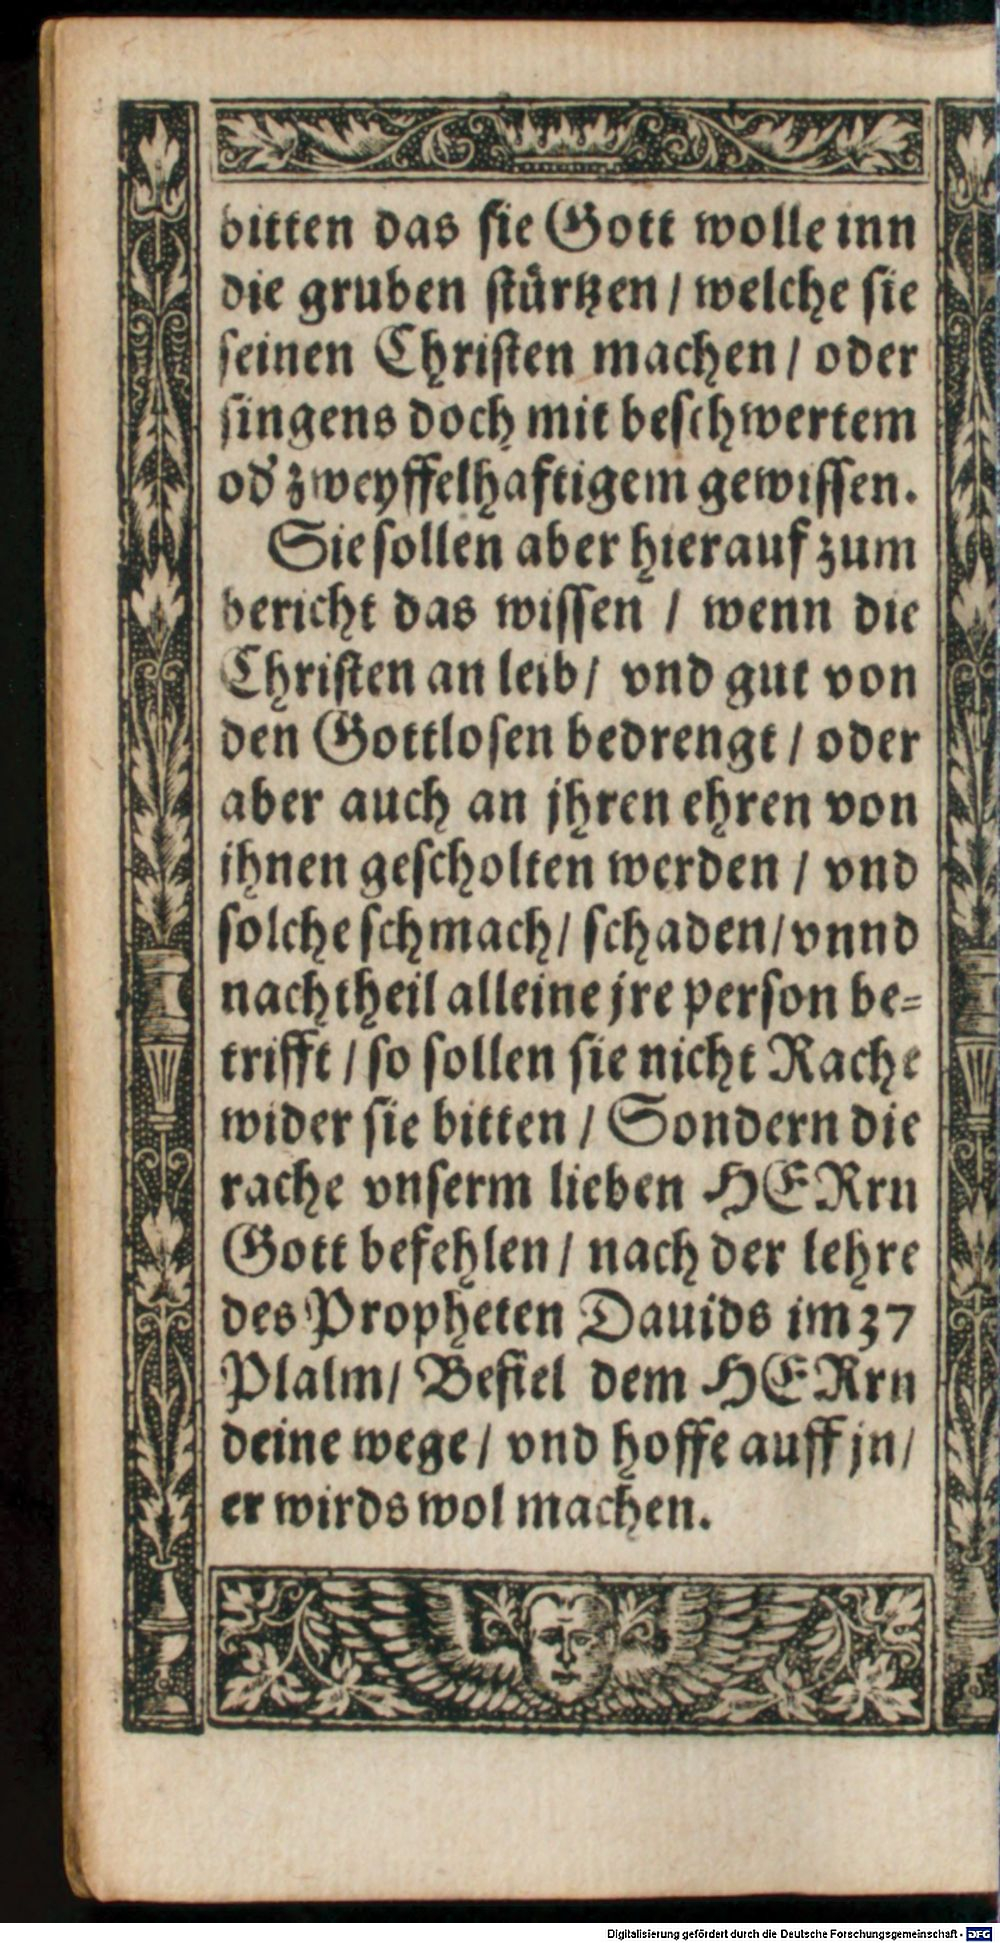 bitten das ſie Gott wolle inn
die gruben ſtürtzen / welche ſie
ſeinen Chriſten machen / oder
ſingens doch mit beſchwertem
od' zweyffelhafftigem gewiſſen.
Sie ſollen aber hierauf zum
bericht das wiſſen / wenn die
Chriſten an leib / vnd gut von
den Gottloſen bedrengt / oder
aber auch an jhren ehren von
ihnen geſcholten werden / vnd
ſolche ſchmach / ſchaden / vnnd
nachtheil alleine jre perſon be=
trifft / ſo ſollen ſie nicht Rache
wider ſie bitten / Sondern die
rache vnſerm lieben HERrn
Gott befehlen / nach der lehre
des Propheten Dauids im 37
Plalm / Befiel dem HERrn
deine wege / vnd hoffe auff jn /
er wirds wol machen.
Digitalisierung gefördert durch die Deutsche Forschungsgemeinschaft - DFG